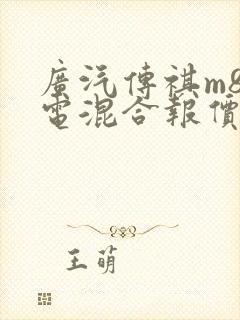 廣汽傳祺m8
電混合報價
王萌